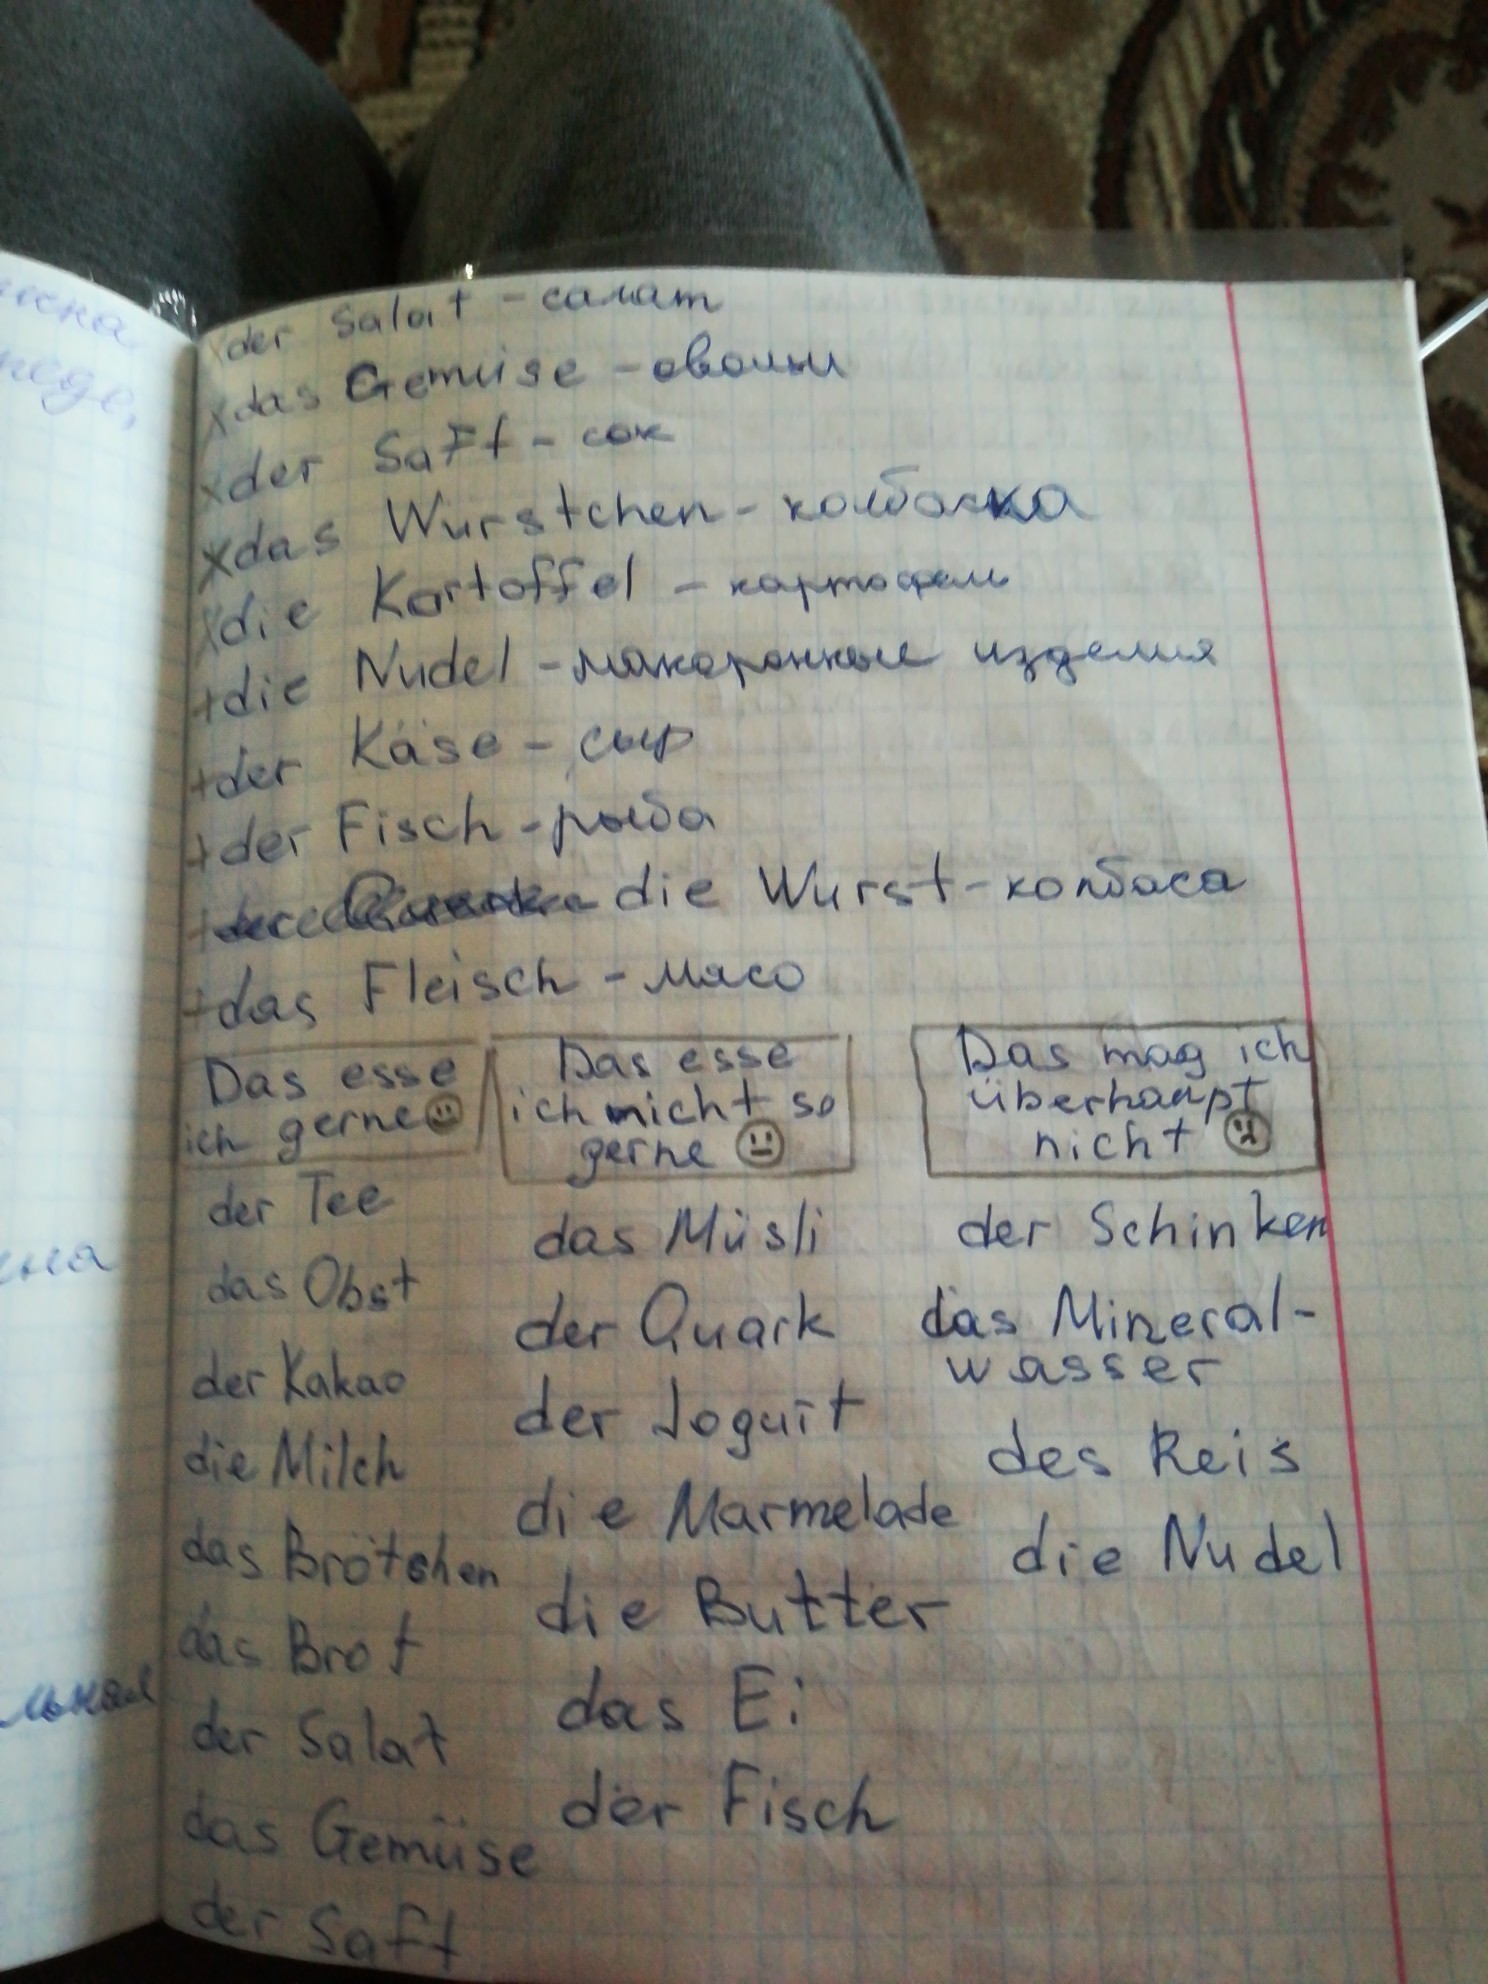 иена
леде,
ена
льная
xder Salat - салат
xdas Gemüse - овощи
xder Saft - сок
xdas Würstchen - колбаска
xdie Kartoffel - картофель
+die Nudel - макаронные изделия
+der Käse - сыр
+der Fisch - рыба
die Wurst - колбаса
+das Fleisch - мясо
Das esse
ich gerne
Das esse
ich nicht so
gerne
Das mag ich
überhaupt
nicht
der Tee
das Obst
der Kakao
die Milch
das Brötchen
das Brot
der Salat
das Gemüse
der Saft
das Müsli
der Quark
der Jogurt
die Marmelade
die Butter
das Ei
der Fisch
der Schinken
das Mineral-
wasser
des Reis
die Nudel